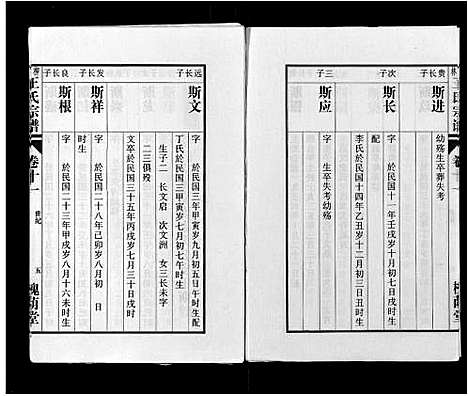 贵长子
斯进
幼殇生卒葬失考
次子
斯长
字 於民国十一年壬戌岁六月初七日戌时生
配
李氏於民国十四年乙丑岁十二月初三日丑时生
三子
斯应
字 生卒失考幼殇
远长子
斯文
字 於民国三年甲寅岁九月初五日午时生配
丁氏於民国三年甲寅岁七月初七午时生
生子二 长文启 次文洲 女三长未字
二三俱殁
文卒於民国三十五年丙戌岁七月三十日戌时
发长子
斯祥
字 於民国二十八年己卯岁八月初 日
时生
良长子
斯根
字 於民国二十三年甲戌岁八月十六未时生
王氏宗谱
卷十一
世纪
五
槐荫堂